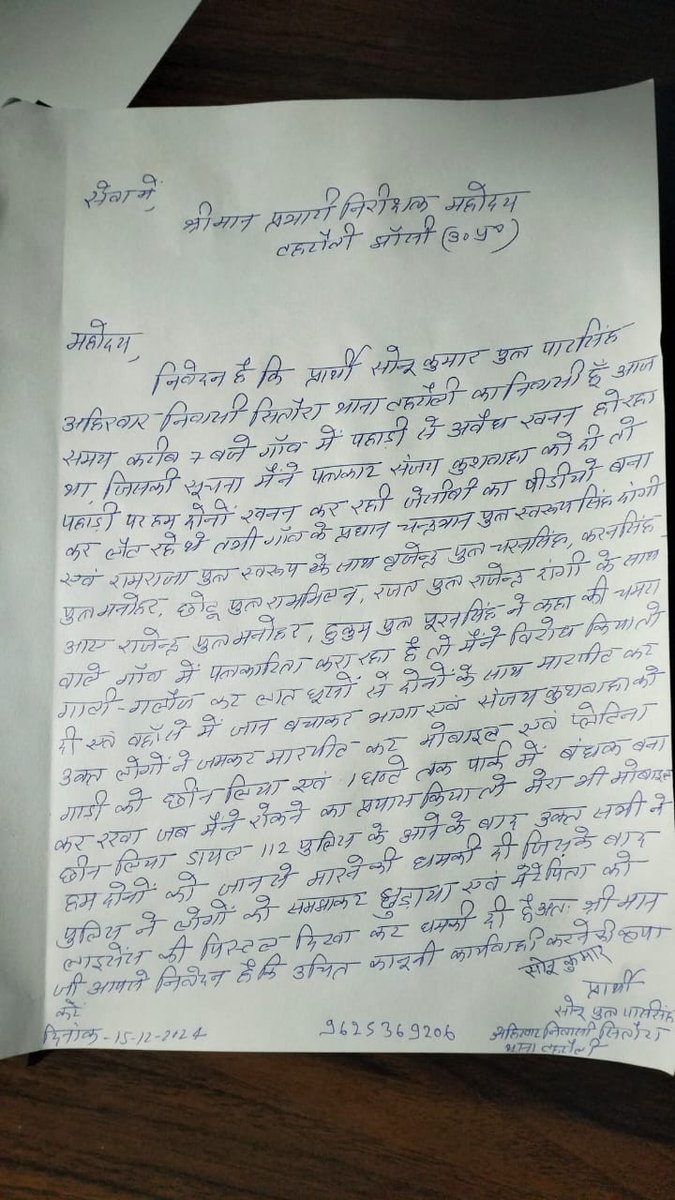 सेवा में,
श्रीमान प्रभारी निरीक्षक महोदय
टहरौली झाँसी (उ०प्र०)
महोदय,
निवेदन है कि प्रार्थी सोनू कुमार पुत्र पारसिंह
अहिरवार निवासी सिलौरा थाना टहरौली का निवासी हूँ आज
समय करीब 7 बजे गाँव में पहाड़ी से अवैध खनन हो रहा
था, जिसकी सूचना मैंने पत्रकार संजय कुशवाहा को दी तो
पहाड़ी पर हम दोनों खनन कर रही जेसीबी का वीडीयो बना
कर लौट रहे थे तभी गाँव के प्रधान चन्द्रभान पुत्र स्वरूप सिंह दांगी
एवं रामराजा पुत्र स्वरूप के साथ बृजेन्द्र पुत्र चरनसिंह, करनसिंह
पुत्र मनोहर, छोटू पुत्र राममिलन, रजत पुत्र राजेन्द्र दांगी के साथ
आए राजेन्द्र पुत्र मनोहर, हुकुम पुत्र पूरनसिंह ने कहा की चमरा
वाले गाँव में पत्रकारिता करा रहा है तो मैंने विरोध किया तो
गाली-गलौज कर लात घूसों से दोनों के साथ मारपीट कर
दी एवं वहाँ से मैं जान बचाकर भागा एवं संजय कुशवाहा को
उक्त लोगों ने जमकर मारपीट कर मोबाइल एवं प्लेटिना
गाडी को छीन लिया एवं 1 घण्टे तक पार्क में बंधक बना
कर रखा जब मैंने रोकने का प्रयास किया तो मेरा भी मोबाइल
छीन लिया डायल 112 पुलिस के आने के बाद उक्त सभी ने
हम दोनों को जान से मारने की धमकी दी जिसके बाद
पुलिस ने लोगों को समझाकर छुड़ाया एवं मेरे पिता को
लाइसेंस की पिस्टल दिखा कर धमकी दी है अतः श्री मान
जी आपसे निवेदन है कि उचित कानूनी कार्यवाही करने की कृपा
करें
सोनू कुमार
प्रार्थी
सोनू पुत्र पारसिंह
अहिरवार निवासी सिलौरा
थाना टहरौली
दिनांक-15-12-2024
9625369206